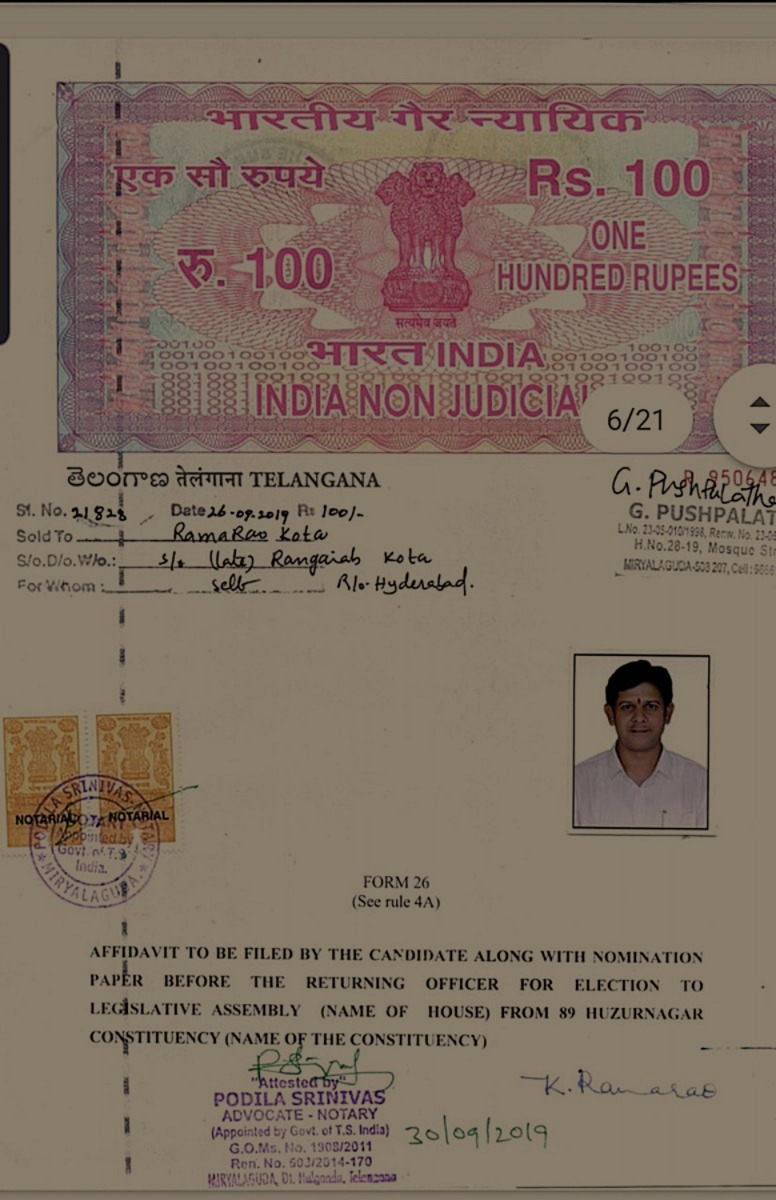 भारतीय गैर न्यायिक
एक सौ रुपये
Rs. 100
रु. 100
ONE
HUNDRED RUPEES
सत्यमेव जयते
भारत INDIA
INDIA NON JUDICIAL
6/21
తెలంగాణ तेलंगाना TELANGANA
Sl. No. 21828 Date 26-09-2019 Rs 100/-
Sold To RamaRao Kota
S/o.D/o.W/o.: s/o (late) Rangaiah Kota
For Whom : self R/o. Hyderabad.
R 950648
G. Pushpalatha
G. PUSHPALAT
L.No. 23-05-010/1998, Renw. No.
H.No.28-19, Mosque Str
MIRYALAGUDA-508 207, Cell :
NOTARIAL NOTARIAL
PODILA SRINIVAS NOTARY
Appointed by
Govt. of T.S.
India.
MIRYALAGUDA.
FORM 26
(See rule 4A)
AFFIDAVIT TO BE FILED BY THE CANDIDATE ALONG WITH NOMINATION
PAPER BEFORE THE RETURNING OFFICER FOR ELECTION TO
LEGISLATIVE ASSEMBLY (NAME OF HOUSE) FROM 89 HUZURNAGAR
CONSTITUENCY (NAME OF THE CONSTITUENCY)
"Attested by"
PODILA SRINIVAS
ADVOCATE - NOTARY
(Appointed by Govt. of T.S. India)
G.O.Ms. No. 1908/2011
Ren. No. 503/2014-170
MIRYALAGUDA, Dt. Nalgonda, Telangana
K. Ramarao
30/09/2019